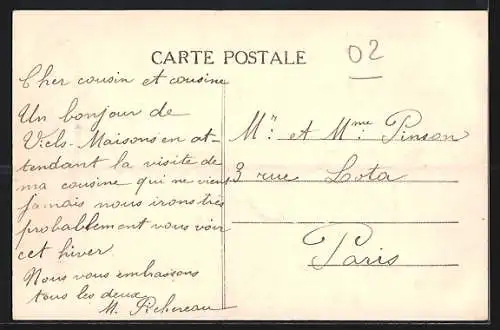 CARTE POSTALE
02
Cher cousin et cousine
Un bonjour de
Viels-Maisons en at-
tendant la visite de
ma cousine qui ne vient
jamais nous irons très
probablement vous voir
cet hiver
Nous vous embrassons
tous les deux
M.
Mr. et Mme. Pinson
3 rue Lota
Paris